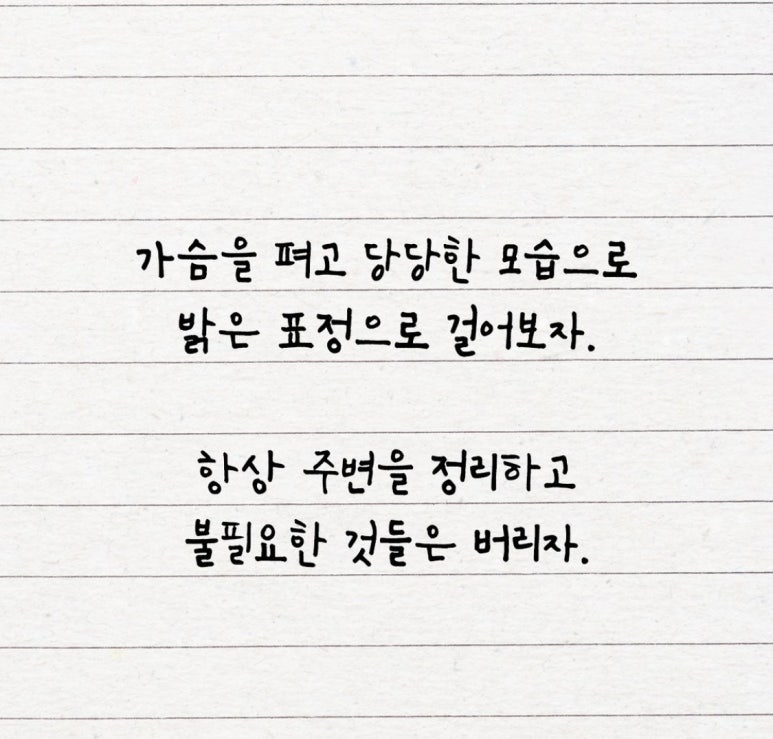 가슴을 펴고 당당한 모습으로
밝은 표정으로 걸어보자.
항상 주변을 정리하고
불필요한 것들은 버리자.